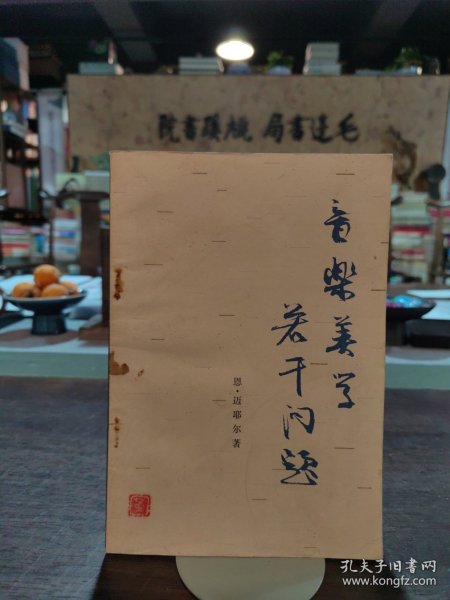 毛边书局 旎蹊書院
音樂美学
若干问题
恩·迈耶尔著
孔夫子旧书网
www.kongfz.com